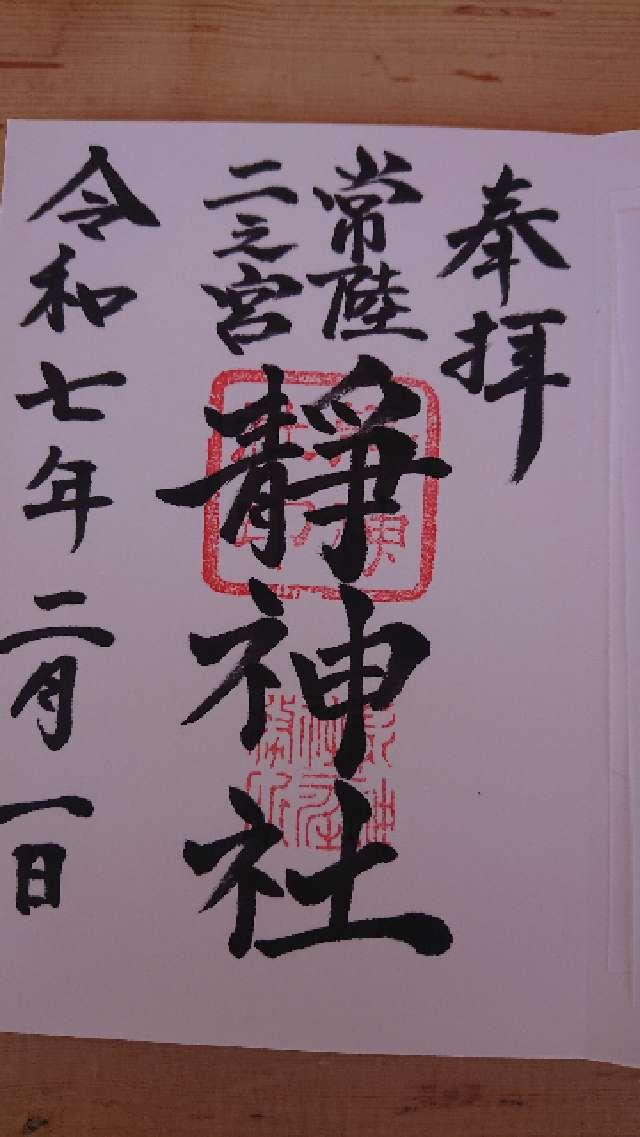 奉拝
常陸
二之宮
靜神社
令和七年二月一日